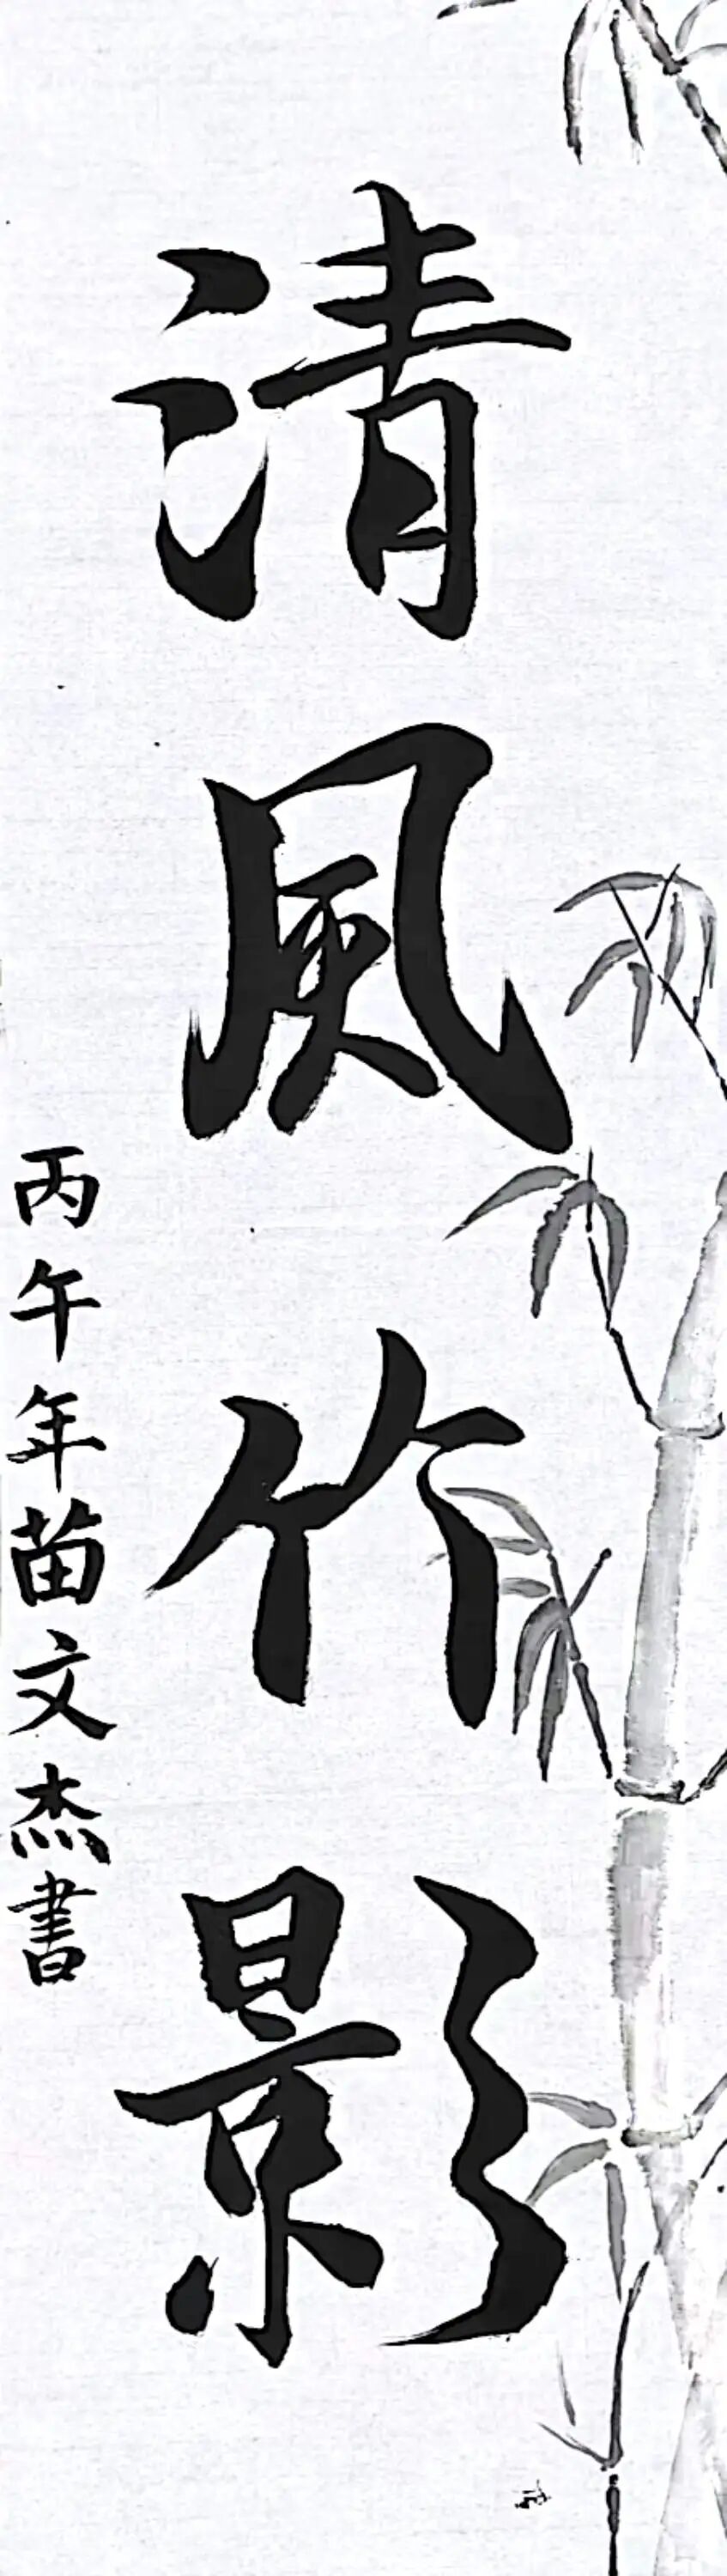 清風竹影
丙午年苗文杰書